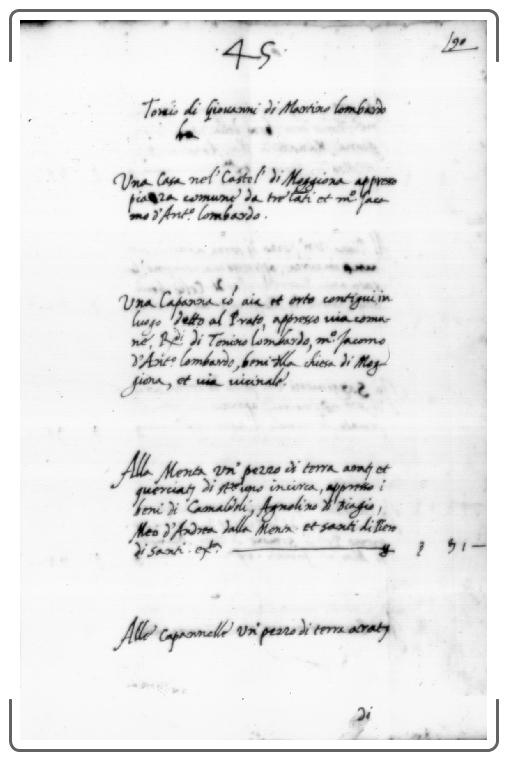 ·45· 190
Tonio di Giovanni di Martino lombardo
ha
Una Casa nel' Castel' di Moggiona appresso
piazza comune da tre lati et mº. Jaco-
mo d'Antº. lombardo.
Una Capanna cō aia et orto contigui in
luogo detto al Prato, appresso via comu-
ne, Rxi di Tonino lombardo, mº. Jacomo
d'Antº lombardo, beni della chiesa di Mog-
giona, et via vicinale.
Alla Monta un' pezzo di terra aratj et
querciatj di incirca, appresso i
beni di Camaldoli, Agnolino di Biagio,
Meo d'Andrea dalla Monta et santi di Piero
di Santi.
Alle Capannelle un' pezzo di terra aratj
di